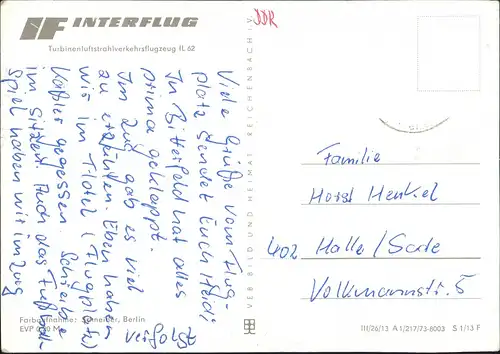 INTERFLUG
Turbinenluftstrahlverkehrsflugzeug IL 62
DDR
Viele Grüße vom Flug-
platz sendet Euch Heidi
In Bitterfeld hat alles
prima geklappt.
Im Zug gab es viel
zu erzählen. Eben haben
wir im Hotel (Flugplatz)
Kaßler gegessen. Schreibe
im Sitzen. Auch das Fußball-
spiel haben wir im Zug
verfolgt
VEB BILD UND HEIMAT REICHENBACH I.V.
Familie
Horst Henkel
402 Halle/Saale
Volkmannstr. 5
Farbaufnahme: Schneider, Berlin
EVP
III/26/13 A 1/217/73-8003 S 1/13 F